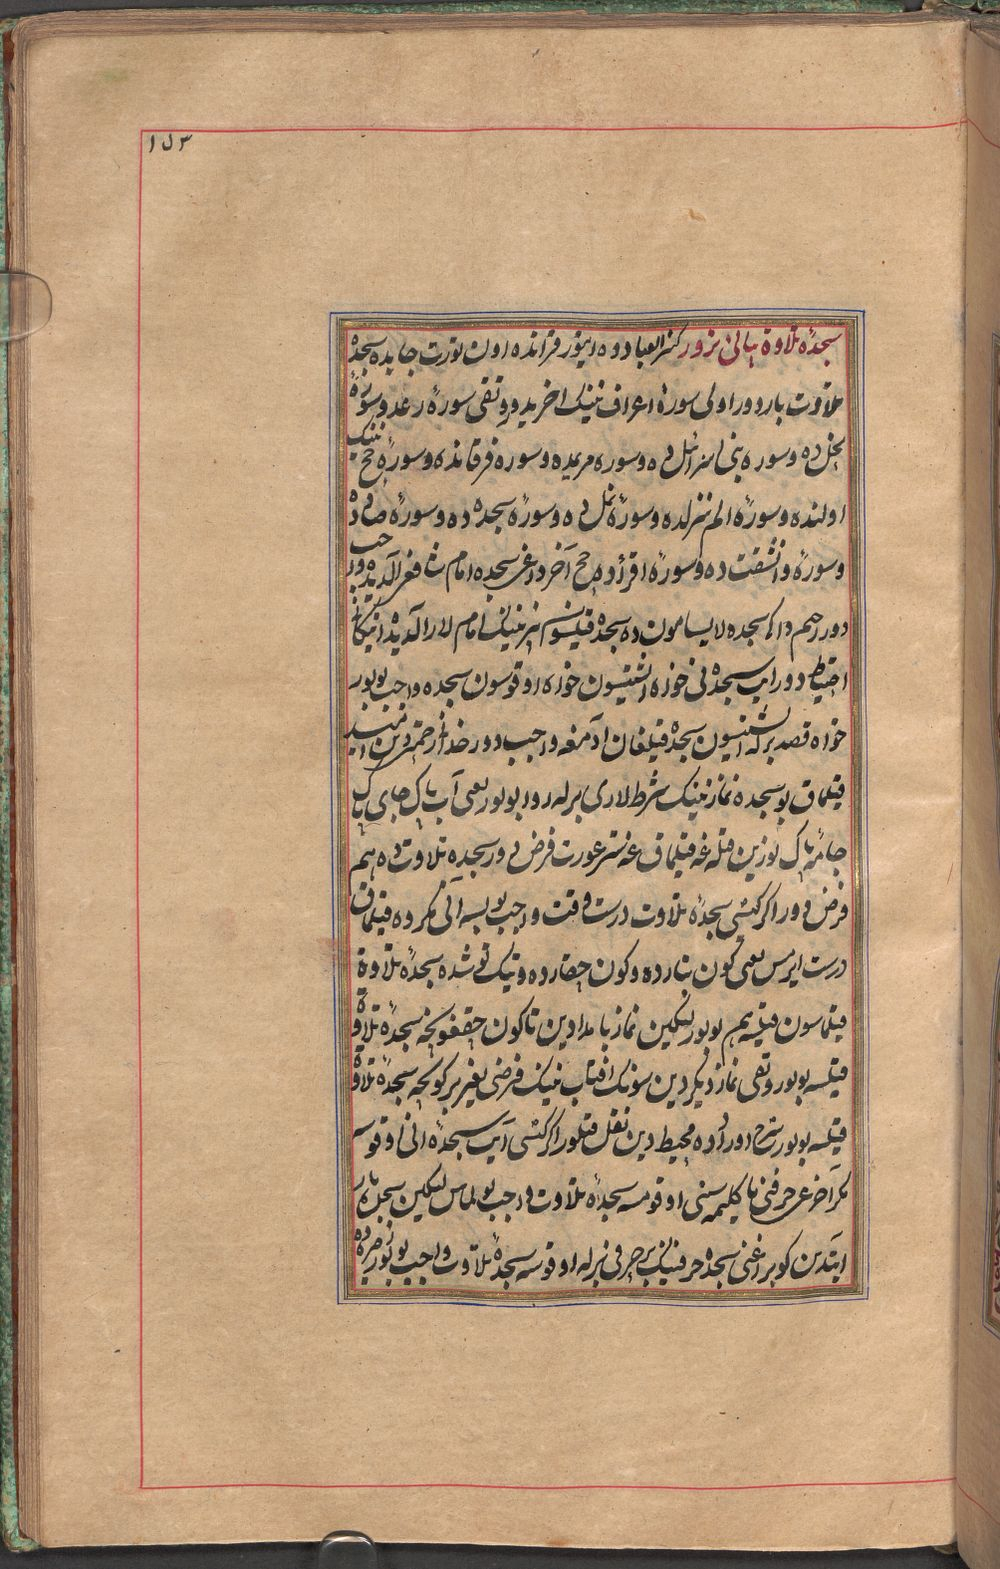 ۱۵۳
سجدهٔ تلاوة بیانی نزور کنز العبادوه ایتور قرانده اون تورت جایده سجدهٔ
تلاوت بار دور اولی سورهٔ اعراف نینک اخریدور وتقی سورهٔ رعد وسورهٔ
نحل ده وسوره بنی اسرائیل ده وسوره مریمده وسوره فرقانده وسورهٔ حج نینک
اولنده وسورهٔ الم تنزلده وسورهٔ نمل ده وسورهٔ سجده ده وسورهٔ صاد ده
وسورهٔ وانشقت ده وسورهٔ اقرأ ده حج آخرداغی سجده امام شافعی قاشیده واجب
دور حم داکی سجده لایسامون ده سجده قیلسون بزنینک امام لار آلدیده
احتیاط دور ایت سجده نی خواه ایشتیسون خواه اوقوسون سجده واجب بولور
خواه قصد برله ایشتیسون سجده قیلغان آدمغه واجب دور خدا رحمتدین امید
قیلماق بو سجده نماز نینک شرط لاری برله روا بولور یعنی آب پاک جای پاک
جامه پاک یوزین قبله غه قیلماق غه ستر عورت فرض دور سجده تلاوت ده هم
فرض دور اکر کیشی سجدهٔ تلاوت درست وقت واجب بولسه آنی مکروه قیلماق
درست ایرمس یعنی کون بتارده وکون چقارده وتیک توشده سجدهٔ تلاوة
قیلماسون قیلسه هم بولور لیکین نماز بامدادین تا کون چقغونچه سجدهٔ تلاوة
قیلسه بولور وتقی نماز دیکردین سونک افتاب نینک قرصی یغیر بر کونچه سجدهٔ تلاوة
قیلسه بولور شرح دوراده محیط دین نقل قیلور اکر کیشی آیت سجده نی اوقوسه
مکر آخرغی حرفنی یا کلیمه سینی اوقومسه سجدهٔ تلاوت واجب بولماس لیکین سجده بار
ایتدین کوبراغنی سجده حرفنینک بر حرفی برله اوقوسه سجدهٔ تلاوت واجب بولور